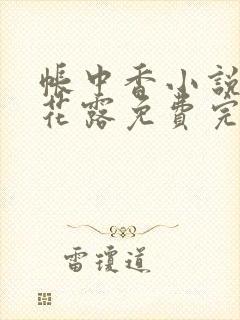 帳中香小說
花露免費完
雷瓊道